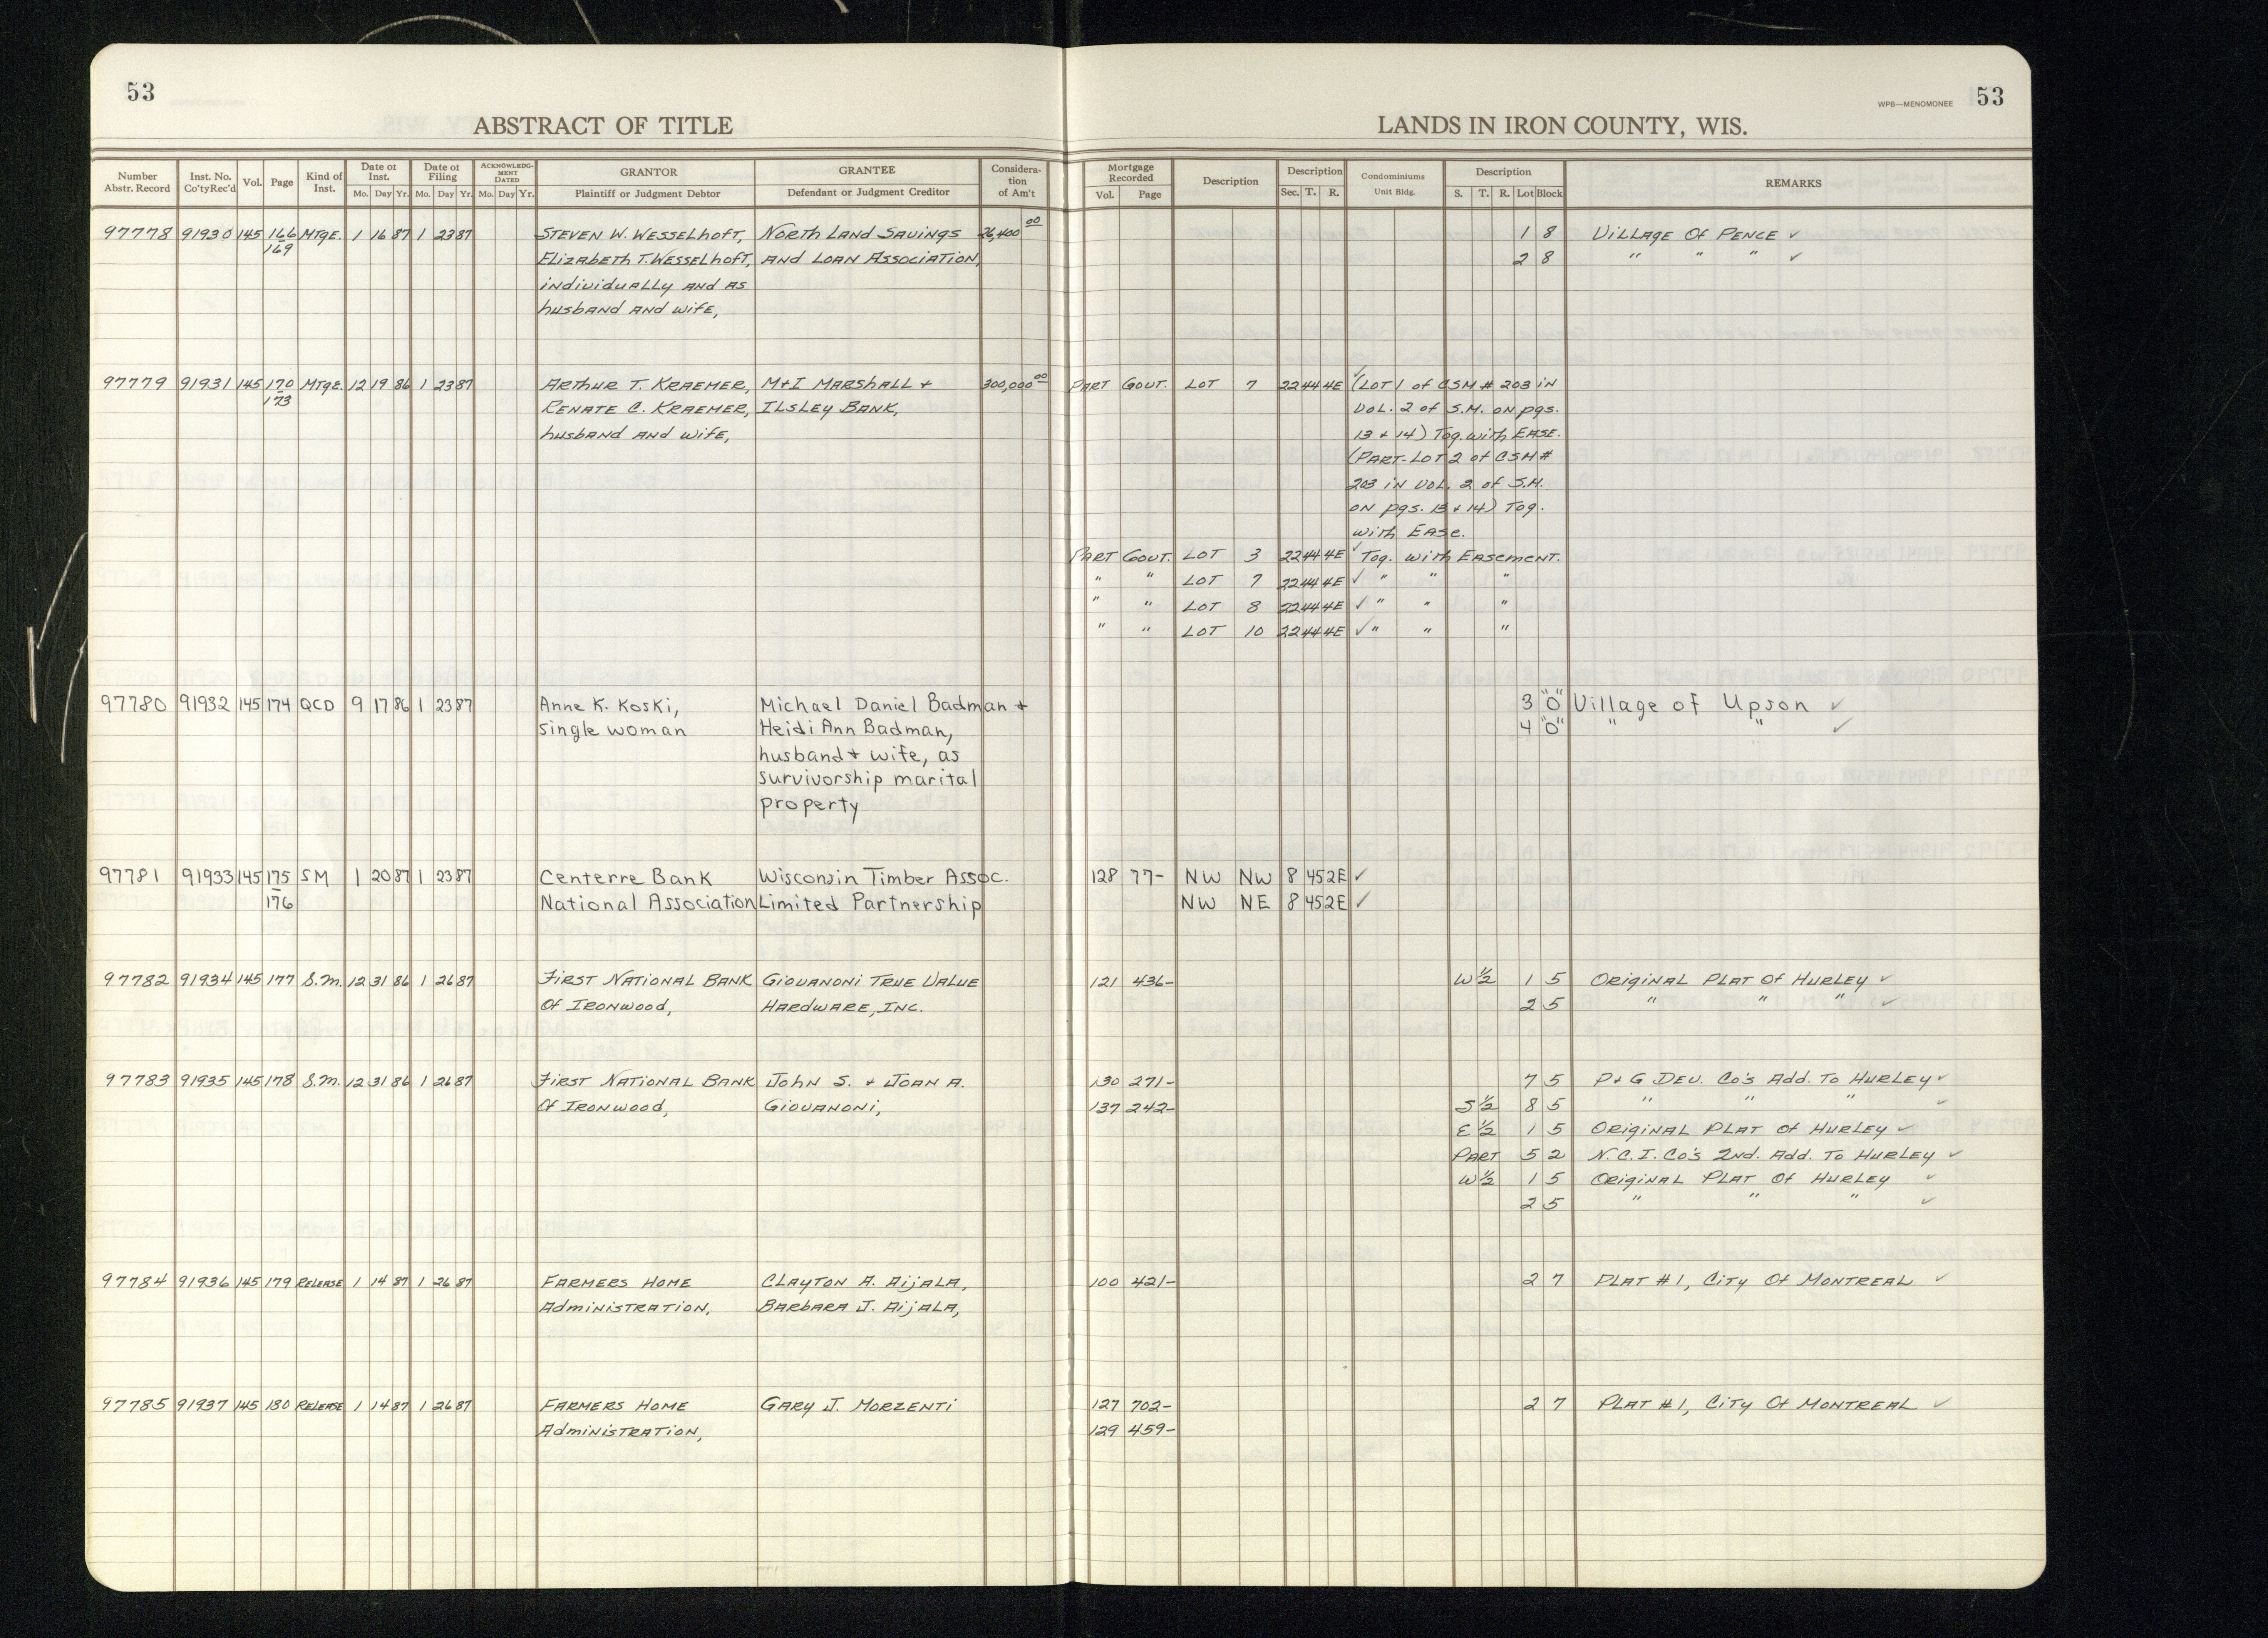 53
WPB—MENOMONEE 53
ABSTRACT OF TITLE
LANDS IN IRON COUNTY, WIS.
Number Abstr. Record Inst. No. Co'tyRec'd Vol. Page Kind of Inst. Date of Inst. Mo. Day Yr. Date of Filing Mo. Day Yr. ACKNOWLEDGMENT DATED Mo. Day Yr. GRANTOR Plaintiff or Judgment Debtor GRANTEE Defendant or Judgment Creditor Consideration of Am't
Mortgage Recorded Vol. Page Description Description Sec. T. R. Condominiums Unit Bldg. Description S. T. R. Lot Block REMARKS
97778 91930 145 166 Mtge. 1 16 87 1 23 87 Steven W. Wesselhoft, North Land Savings 26,400 00 1 8 Village Of Pence ✓
169 Elizabeth T. Wesselhoft, and Loan Association, 2 8 " " " ✓
individually and as
husband and wife,
97779 91931 145 170 Mtge. 12 19 86 1 23 87 Arthur T. Kraemer, M+I Marshall + 300,000 00 Part Gout. Lot 7 22 44 4E ✓ (Lot 1 of CSM # 203 in
173 Renate C. Kraemer, Ilsley Bank, Vol. 2 of S.M. on pgs.
husband and wife, 13 + 14) Tog. with Ease.
(Part-Lot 2 of CSM #
203 in Vol. 2 of S.M.
on pgs. 13 + 14) Tog.
with Ease.
Part Gout. Lot 3 22 44 4E ✓ Tog. with Easement.
" " Lot 7 22 44 4E ✓ " " "
" " Lot 8 22 44 4E ✓ " " "
" " Lot 10 22 44 4E ✓ " " "
97780 91932 145 174 QCD 9 17 86 1 23 87 Anne K. Koski, Michael Daniel Badman + 3 "O" Village of Upson ✓
single woman Heidi Ann Badman, 4 "O" " " ✓
husband + wife, as
survivorship marital
property
97781 91933 145 175 SM 1 20 87 1 23 87 Centerre Bank Wisconsin Timber Assoc. 128 77- NW NW 8 45 2E ✓
176 National Association Limited Partnership NW NE 8 45 2E ✓
97782 91934 145 177 S.M. 12 31 86 1 26 87 First National Bank Giovanoni True Value 121 436- W½ 1 5 Original Plat Of Hurley ✓
Of Ironwood, Hardware, Inc. 2 5 " " " ✓
97783 91935 145 178 S.M. 12 31 86 1 26 87 First National Bank John S. + Joan A. 130 271- 7 5 P+G Dev. Co's Add. To Hurley ✓
Of Ironwood, Giovanoni, 137 242- S½ 8 5 " " " ✓
E½ 1 5 Original Plat Of Hurley ✓
Part 5 2 N.C.I. Co's 2nd. Add. To Hurley ✓
W½ 1 5 Original Plat Of Hurley ✓
2 5 " " " ✓
97784 91936 145 179 Release 1 14 87 1 26 87 Farmers Home Clayton A. Aijala, 100 421- 2 7 Plat #1, City Of Montreal ✓
Administration, Barbara J. Aijala,
97785 91937 145 180 Release 1 14 87 1 26 87 Farmers Home Gary J. Morzenti 127 702- 2 7 Plat #1, City Of Montreal ✓
Administration, 129 459-